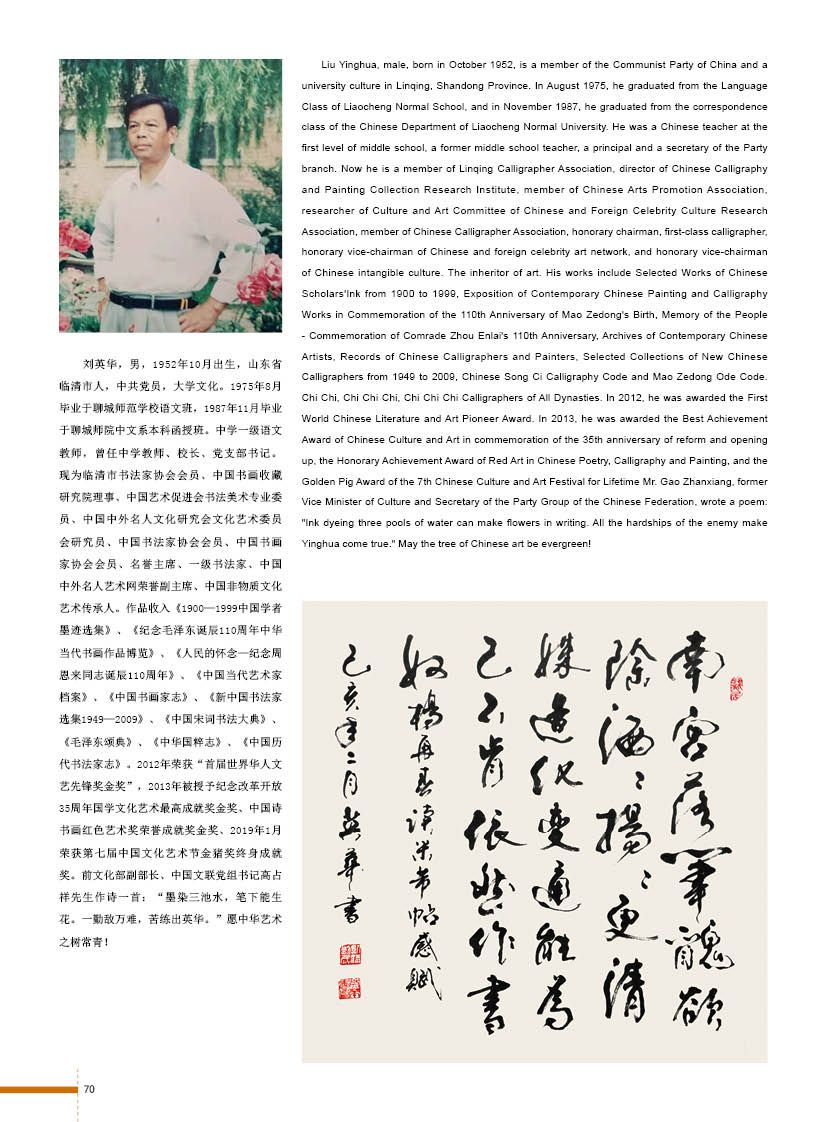 Liu Yinghua, male, born in October 1952, is a member of the Communist Party of China and a
university culture in Linqing, Shandong Province. In August 1975, he graduated from the Language
Class of Liaocheng Normal School, and in November 1987, he graduated from the correspondence
class of the Chinese Department of Liaocheng Normal University. He was a Chinese teacher at the
first level of middle school, a former middle school teacher, a principal and a secretary of the Party
branch. Now he is a member of Linqing Calligrapher Association, director of Chinese Calligraphy
and Painting Collection Research Institute, member of Chinese Arts Promotion Association,
researcher of Culture and Art Committee of Chinese and Foreign Celebrity Culture Research
Association, member of Chinese Calligrapher Association, honorary chairman, first-class calligrapher,
honorary vice-chairman of Chinese and foreign celebrity art network, and honorary vice-chairman
of Chinese intangible culture. The inheritor of art. His works include Selected Works of Chinese
Scholars'Ink from 1900 to 1999, Exposition of Contemporary Chinese Painting and Calligraphy
Works in Commemoration of the 110th Anniversary of Mao Zedong's Birth, Memory of the People
- Commemoration of Comrade Zhou Enlai's 110th Anniversary, Archives of Contemporary Chinese
Artists, Records of Chinese Calligraphers and Painters, Selected Collections of New Chinese
Calligraphers from 1949 to 2009, Chinese Song Ci Calligraphy Code and Mao Zedong Ode Code.
Chi Chi, Chi Chi Chi, Chi Chi Chi Calligraphers of All Dynasties. In 2012, he was awarded the First
World Chinese Literature and Art Pioneer Award. In 2013, he was awarded the Best Achievement
Award of Chinese Culture and Art in commemoration of the 35th anniversary of reform and opening
up, the Honorary Achievement Award of Red Art in Chinese Poetry, Calligraphy and Painting, and the
Golden Pig Award of the 7th Chinese Culture and Art Festival for Lifetime Mr. Gao Zhanxiang, former
Vice Minister of Culture and Secretary of the Party Group of the Chinese Federation, wrote a poem:
"Ink dyeing three pools of water can make flowers in writing. All the hardships of the enemy make
Yinghua come true." May the tree of Chinese art be evergreen!
刘英华，男，1952年10月出生，山东省
临清市人，中共党员，大学文化。1975年8月
毕业于聊城师范学校语文班，1987年11月毕业
于聊城师院中文系本科函授班。中学一级语文
教师，曾任中学教师、校长、党支部书记。
现为临清市书法家协会会员、中国书画收藏
研究院理事、中国艺术促进会书法美术专业委
员、中国中外名人文化研究会文化艺术委员
会研究员、中国书法家协会会员、中国书画
家协会会员、名誉主席、一级书法家、中国
中外名人艺术网荣誉副主席、中国非物质文化
艺术传承人。作品收入《1900—1999中国学者
墨迹选集》、《纪念毛泽东诞辰110周年中华
当代书画作品博览》、《人民的怀念—纪念周
恩来同志诞辰110周年》、《中国当代艺术家
档案》、《中国书画家志》、《新中国书法家
选集1949—2009》、《中国宋词书法大典》、
《毛泽东颂典》、《中华国粹志》、《中国历
代书法家志》。2012年荣获“首届世界华人文
艺先锋奖金奖”，2013年被授予纪念改革开放
35周年国学文化艺术最高成就奖金奖、中国诗
书画红色艺术奖荣誉成就奖金奖、2019年1月
荣获第七届中国文化艺术节金猪奖终身成就
奖。前文化部副部长、中国文联党组书记高占
祥先生作诗一首：“墨染三池水，笔下能生
花。一勤敌万难，苦练出英华。”愿中华艺术
之树常青！
南宫落笔丑欲
除洒洒扬扬更清
姝造化变通能为
己不肯依然作书
奴杨再春读米芾帖感赋
己亥年二月英华书
70